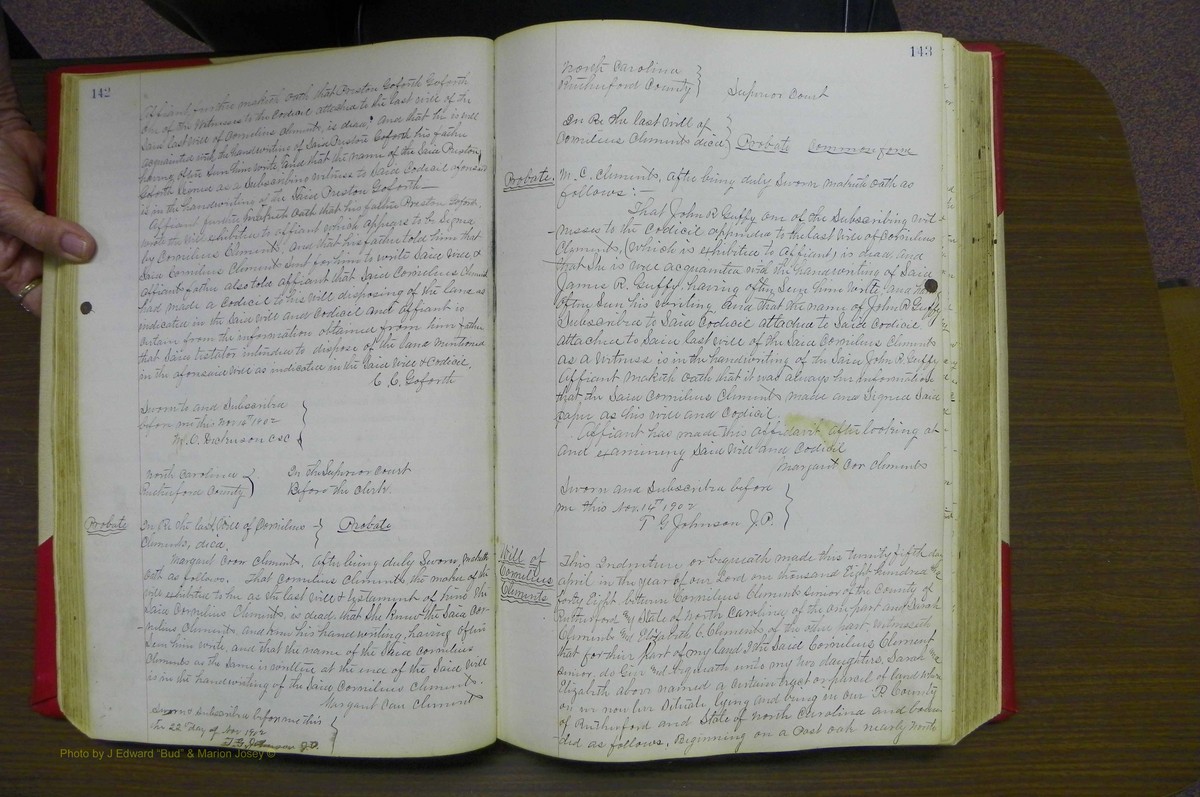 142
Affiant further maketh oath that Preston Goforth Goforth
one of the Witnesses to the Codicil attached to the last will of the
Said last will of Cornelius Clements, is dead, and that he is well
acquainted with the handwriting of Said Preston Goforth his father
having often Seen him write, and that the name of the Said Preston
Goforth Signed as a Subscribing witness to Said Codicil aforesaid
is in the handwriting of the Said Preston Goforth—
Affiant further maketh oath that his father Preston Goforth
wrote the will exhibited to affiant which appears to be Signed
by Cornelius Clements, and that his father told him that
Said Cornelius Clements Sent for him to write Said will, &
affiants father also told affiant that Said Cornelius Clements
had made a Codicil to his will disposing of the land as
indicated in the Said will and Codicil and Affiant is
certain from the information obtained from him father
that Said testator intended to dispose of the land mentioned
in the aforesaid will as indicated in the Said will & Codicil,
C. C. Goforth
Sworn to and Subscribed
before me this Nov 12th 1902
M. O. Dickerson CSC
North Carolina
Rutherford County
In the Superior Court
Before the Clerk.
Probate
In Re the last Will of Cornelius
Clements, died.
Probate
Margaret Coor Clements. After being duly Sworn, maketh
oath as follows. That Cornelius Clements the maker of the
will exhibited to her as the last will & testament of him the
Said Cornelius Clements, is dead, that She knew the Said Cor-
nelius Clements, and knew his handwriting, having often
Seen him write, and that the name of the Said Cornelius
Clements as the Same is written at the end of the Said will
is in the handwriting of the Said Cornelius Clements.
Margaret Carr Clements
Sworn & Subscribed before me this
the 22 day of Nov 1902
T. G. Johnson J.P.
143
North Carolina
Rutherford County
Superior Court
In Re the last Will of
Cornelius Clements died
Probate Common form
Probate.
M. C. Clements, After being duly Sworn maketh oath as
follows:—
That John R Guffy one of the Subscribing wit-
nesses to the Codicil appended to the last will of Cornelius
Clements, (which is exhibited to Affiant) is dead, and
that She is well acquainted with the handwriting of Said
James R. Guffy, having often Seen him write and has
often Seen his writing, and that the name of John R Guffy
Subscribed to Said Codicil attached to Said Codicil
attached to Said last will of the Said Cornelius Clements
as a Witness is in the handwriting of the Said John R Guffy
Affiant Maketh oath that it was always her information
that the Said Cornelius Clements made and Signed Said
paper as his will and Codicil.
Affiant has made this Affidavit after looking at
and examining Said Will and Codicil
Margaret Cor Clements
Sworn and Subscribed before
me this Nov. 14th 1902
T G Johnson J.P.
Will of
Cornelius
Clements
This Indenture or bequeath made this twenty fifth day
april in the year of our Lord one thousand Eight hundred and
forty Eight between Cornelius Clements Senior of the County of
Rutherford and State of North Carolina of the one part and Sarah
Clements and Elizabeth C. Clements of the other part Witnesseth
that for their part of my land, I the Said Cornelius Clement
Senior, do Give and bequeath unto my two daughters, Sarah and
Elizabeth above named a certain tract or parcel of land where
on we now live Situate, lying and being in our P. County
of Rutherford and State of North Carolina and boun
ded as follows, Beginning on a Post oak nearly North
Photo by J Edward "Bud" & Marion Josey ©